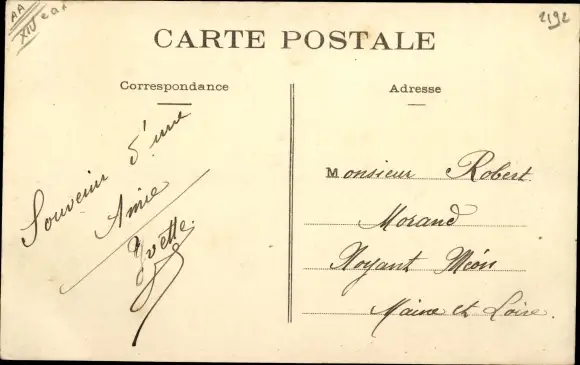 AA
XIV eax
2192
CARTE POSTALE
Correspondance
Souvenir d'une
Amie
Yvette.
Adresse
Monsieur Robert
Morand
Noyant Méon
Maine et Loire.